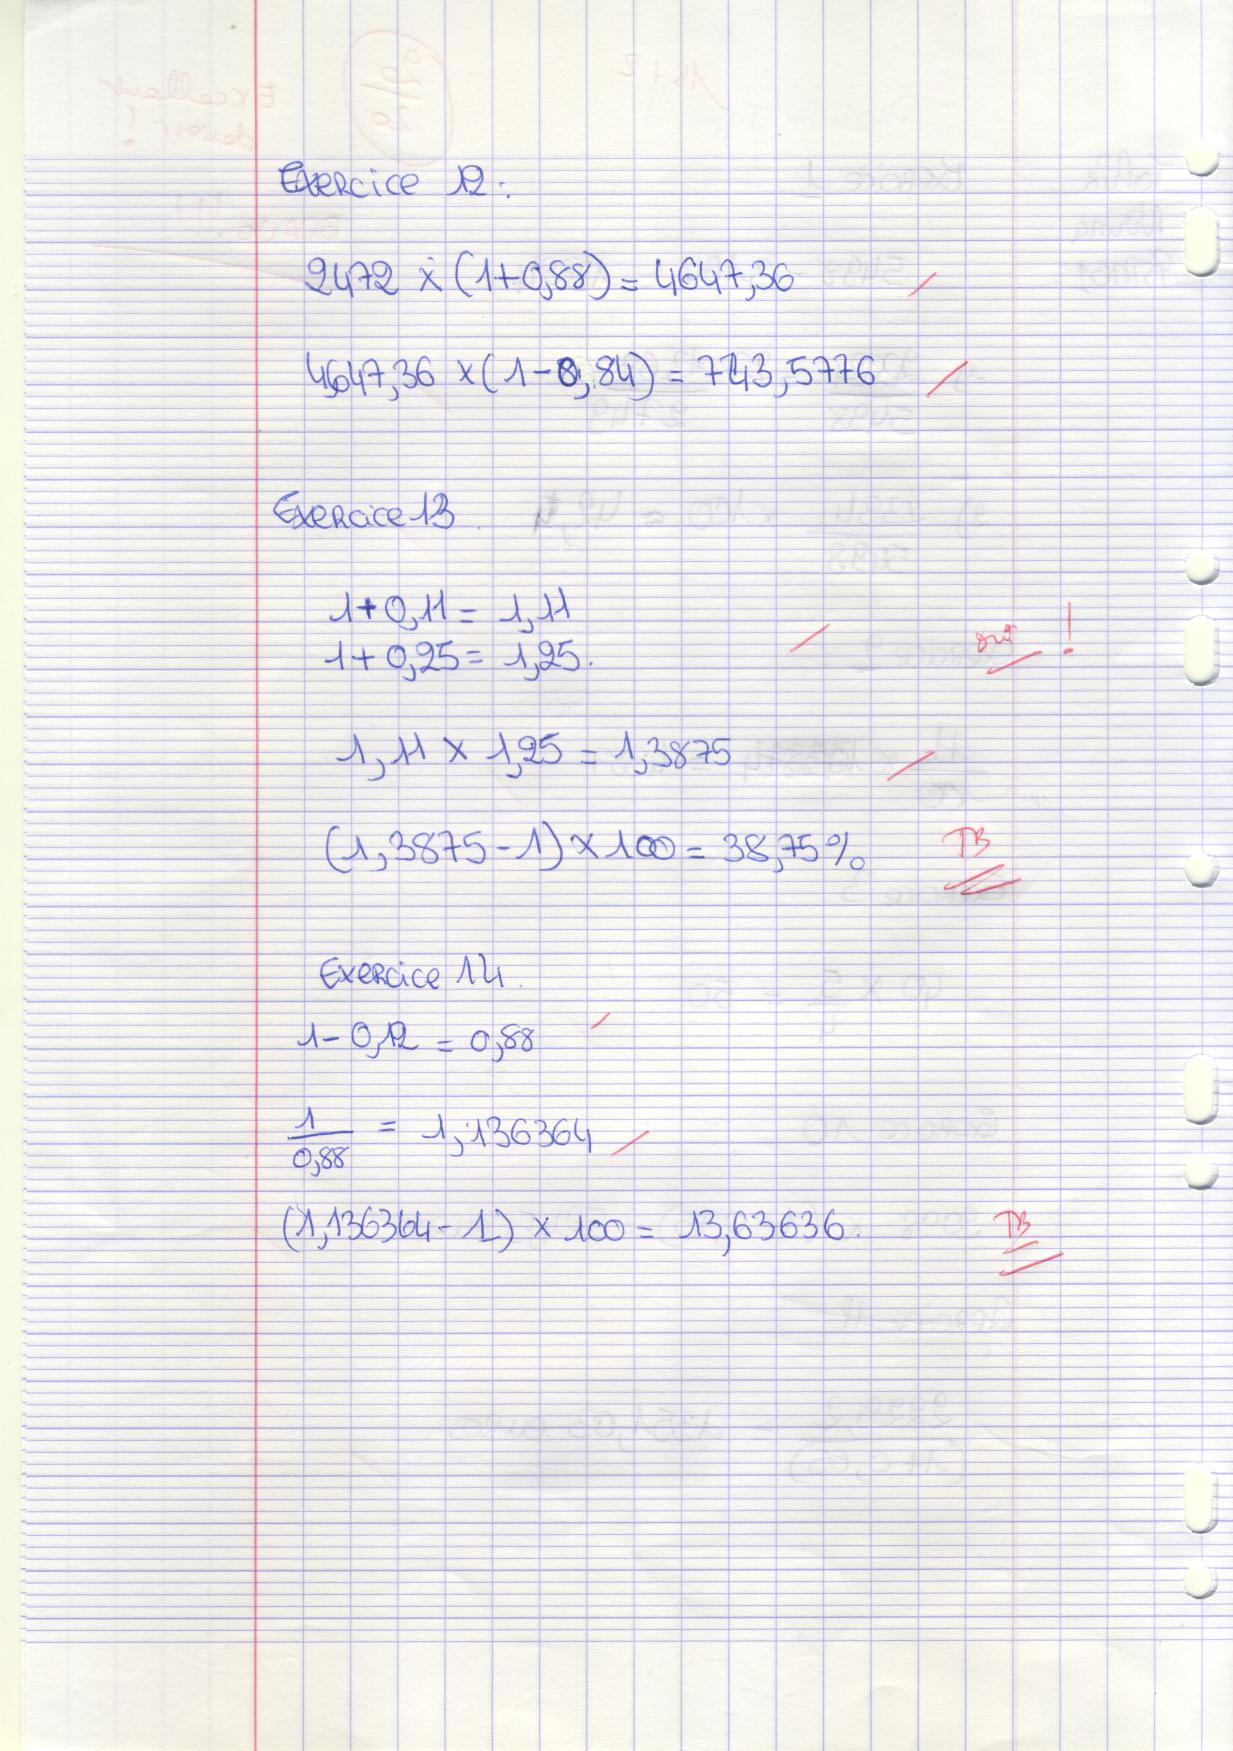 Exercice 12 :
2472 × (1+0,88) = 4647,36
4647,36 × (1-0,84) = 743,5776
Exercice 13
1+0,11 = 1,11
1+0,25 = 1,25.
oui !
1,11 × 1,25 = 1,3875
(1,3875-1) × 100 = 38,75%
TB
Exercice 14.
1-0,12 = 0,88
1/0,88 = 1,136364
(1,136364-1) × 100 = 13,63636.
TB